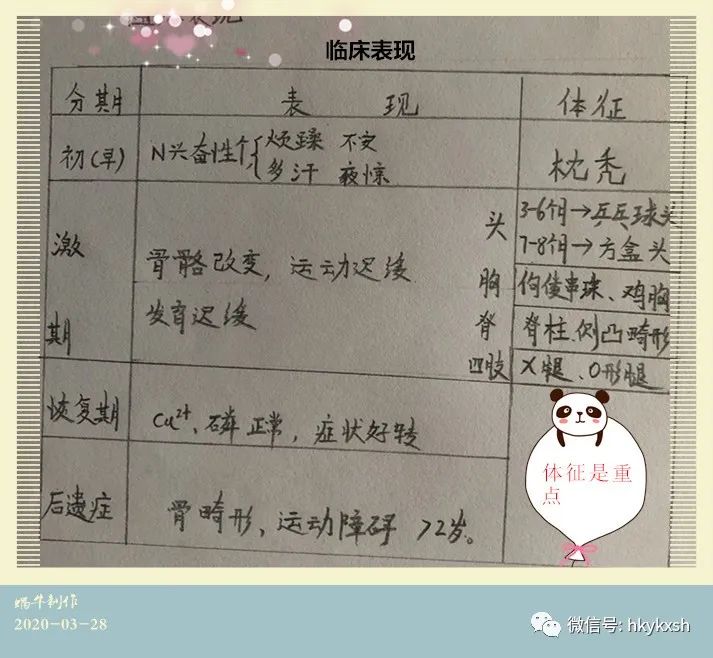 临床表现
分期 表 现 体征
初(早) N兴奋性个 烦躁 不安
多汗 夜惊
枕秃
激期
骨骼改变, 运动迟缓
发育迟缓
头 3-6个月→乒乓球头
7-8个月→方盒头
胸 佝偻串珠、鸡胸
脊 脊柱侧凸畸形
四肢 X腿、O形腿
恢复期 Ca2+、磷正常, 症状好转
后遗症 骨畸形、运动障碍 >2岁。
体征是重
点
蜗牛制作
2020-03-28
微信号: hkykxsh